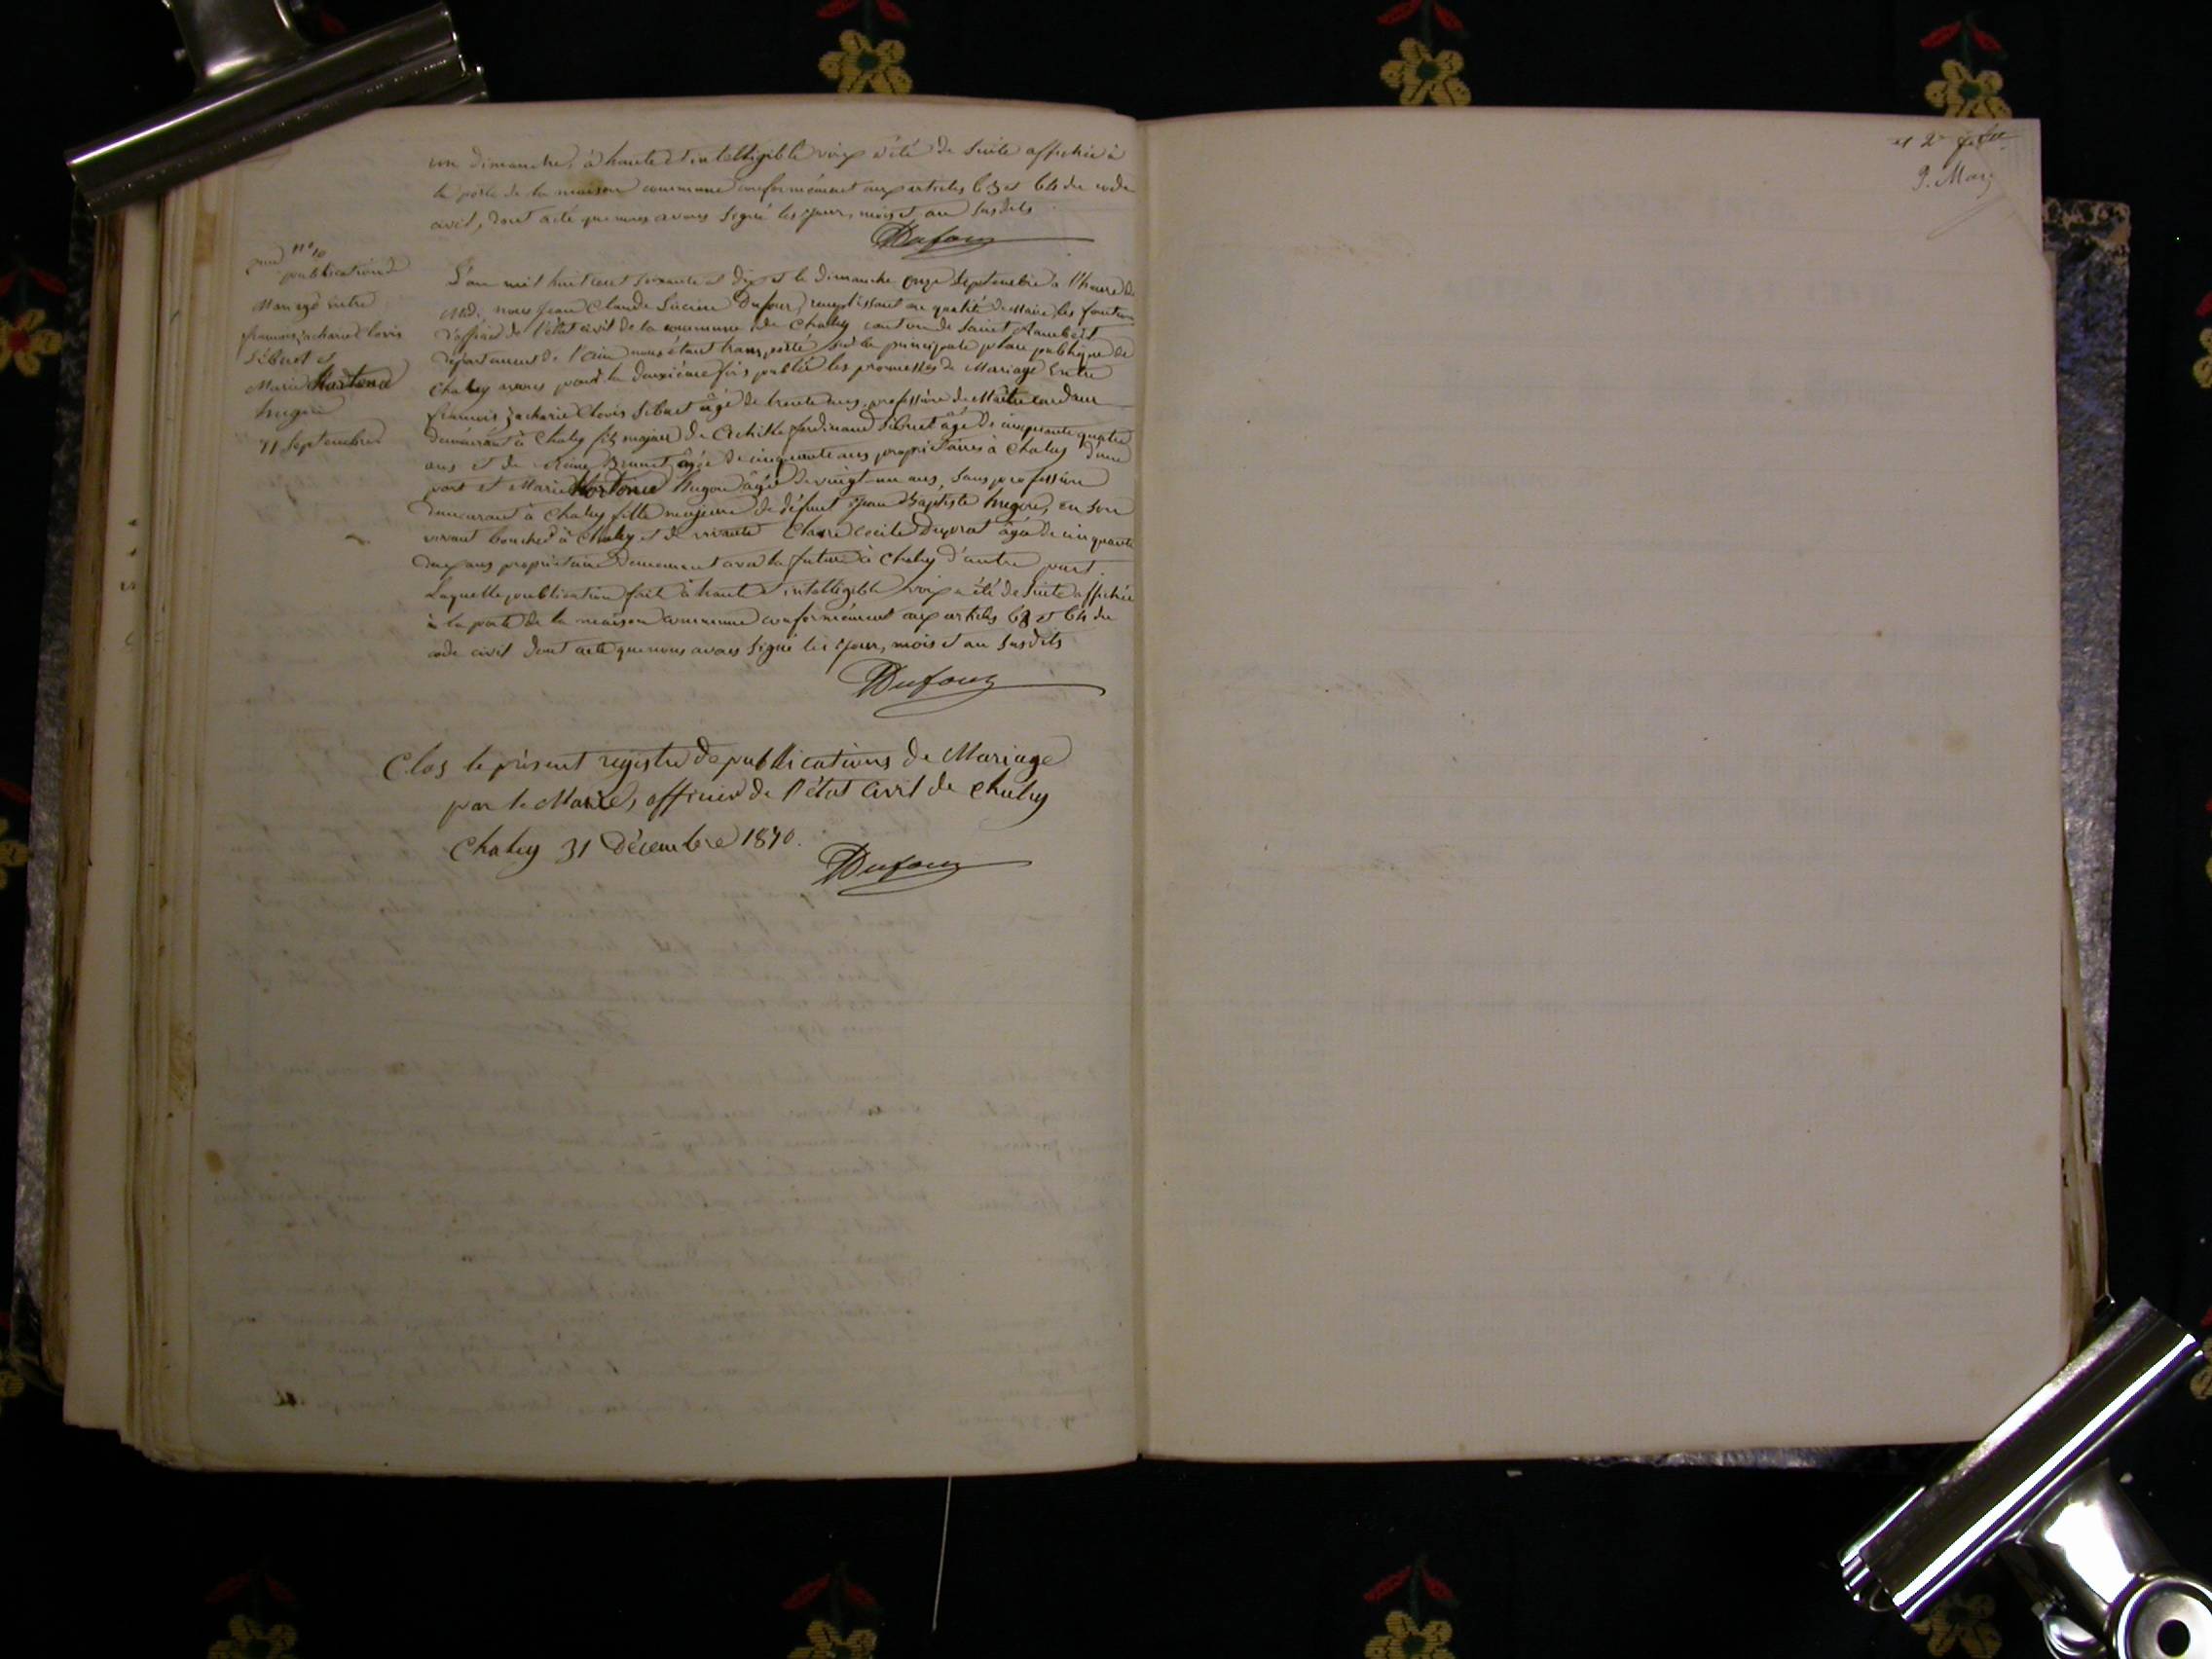 un dimanche, à haute et intelligible voix a été de suite affichée à
la porte de la maison commune conformément aux articles 63 et 64 du code
civil, dont acte que nous avons signé les jour, mois et an susdits
Dufour
n° 10
2me publication de
Mariage entre
françois zacharie Clovis
Sibuet et
Marie Hortence
hugon
11 Septembre
L'an mil huit cent soixante et dix et le dimanche onze Septembre à l'heure de
Midi, nous Jean Claude Lucien Dufour, remplissant en qualité de Maire, les fonctions
d'officier de l'état civil de la commune de Chaley canton de Saint Rambert
département de l'ain nous étant transporté sur la principale place publique de
Chaley avons pour la deuxième fois publié les promesses de Mariage Entre
françois zacharie Clovis Sibuet âgé de trente ans, profession de Maître
demeurant à Chaley fils majeur de Achille ferdinand Sibuet âgé de cinquante quatre
ans et de Reine Brunet âgée de cinquante ans propriétaires à Chaley d'une
part et Marie Hortence hugon âgée de vingt un ans, sans profession
demeurant à Chaley fille majeure de défunt Jean Baptiste hugon, en son
vivant boucher à Chaley et de vivante Claire Cécile âgée de cinquante
deux ans propriétaire demeurant avec la future à Chaley d'autre part.
Laquelle publication faite à haute et intelligible voix a été de suite affichée
à la porte de la maison commune conformément aux articles 63 et 64 du
code civil dont acte que nous avons signé les jour, mois et an susdits
Dufour
Clos le présent registre de publications de Mariage
par le Maire, officier de l'état civil de Chaley
Chaley 31 Décembre 1870.
Dufour
et 2e